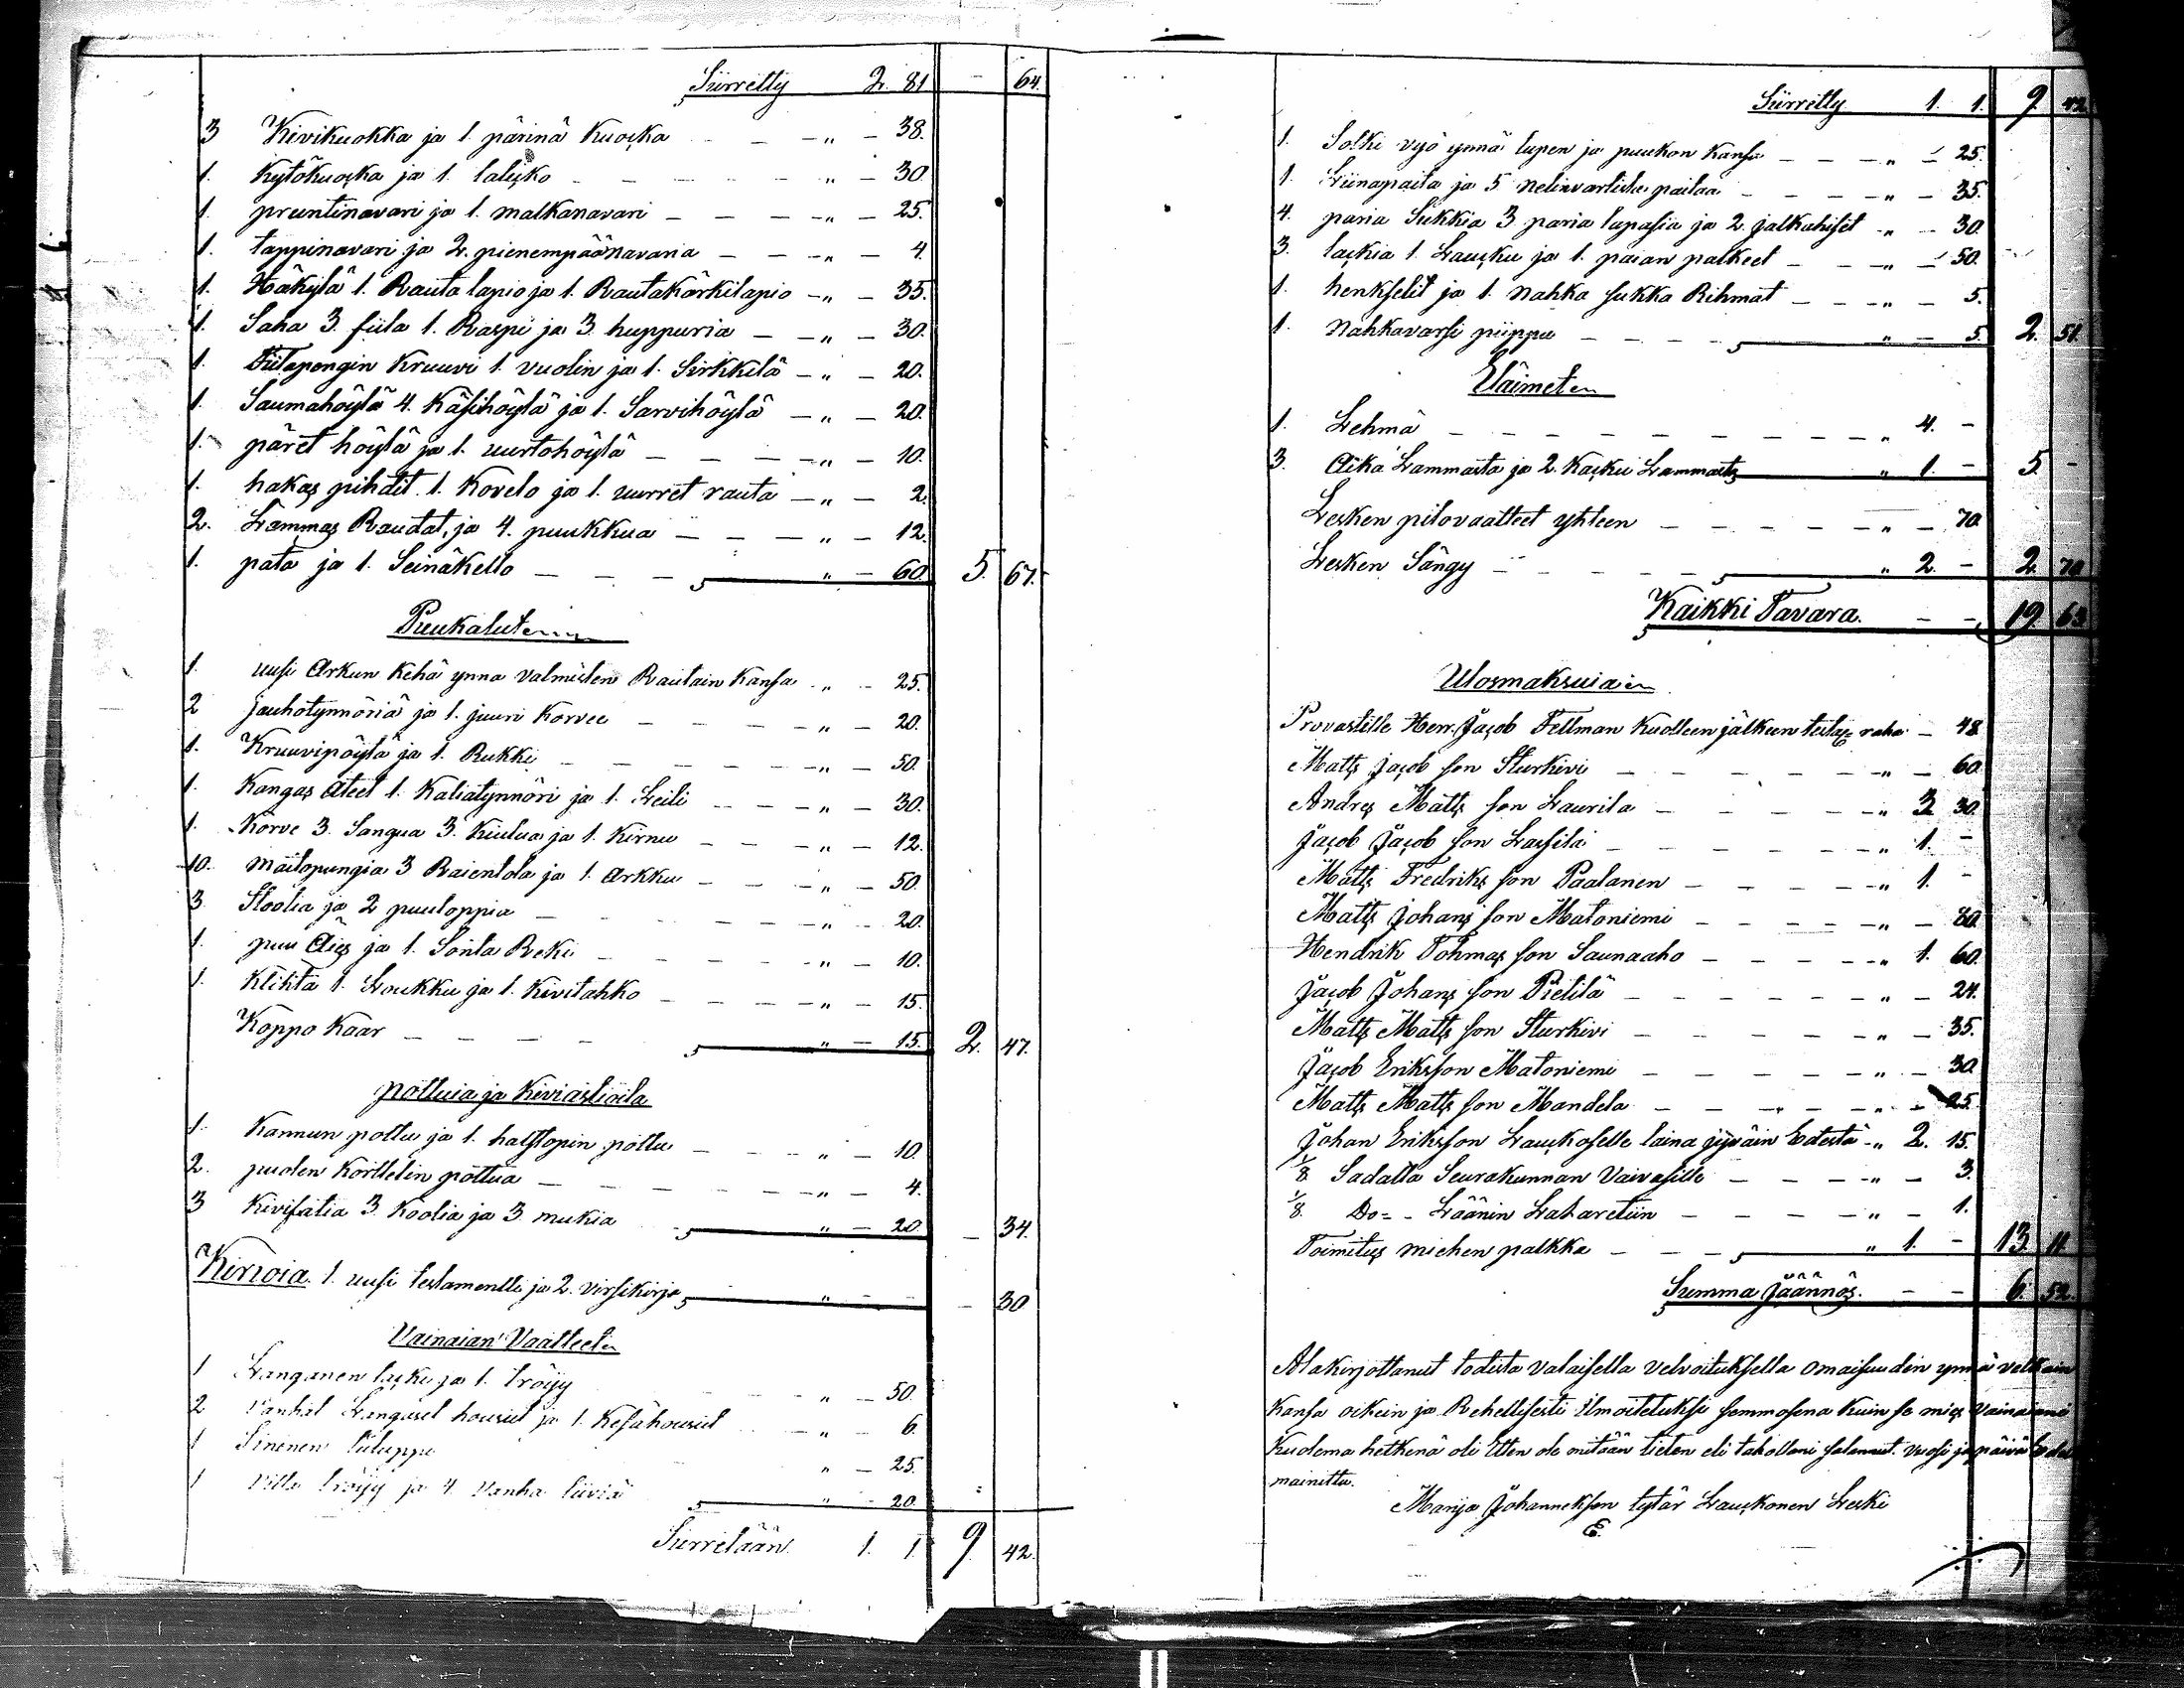 Siirretty 2. 81 - 64.
3 Kivikuokka ja 1. pärinä Kuocka - " - 38.
1. Kytökuocka ja 1. talicko - " - 30
1. pruntinavari ja 1. malkanavari - " - 25.
1. tappinavari ja 2. pienempäänavaria - " - 4.
1. Häkylä 1. Rauta lapio ja 1. Rautakärkilapio - " - 35.
1. Saha 3. fiila 1. Raspi ja 3. huppuria - " - 30.
1. Fiilapengin Kruuvi 1. vuolin ja 1. Sirkkelä - " - 20.
1. Saumahöylä 4. Käsihöylä ja 1. Sarvihöylä - " - 20.
1. päret höylä ja 1. uurtohöylä - " - 10.
1. hakas pihdit 1. Kovelo ja 1. uurret rauta - " - 2.
2. Lammas Raudat, ja 4. puukkua - " - 12.
1. pata ja 1. Seinäkello - " - 60. 5. 67.
Puukaluten
1. uusi Arkun Kehä ynna valmiiten Rautain Kansa " - 25.
2 jauhotynnöriä ja 1. juuri Korvee - " - 20.
1. Kruuvipöytä ja 1. Rukki - " - 50.
1. Kangas Ateet 1. Kaliatynnöri ja 1. Leili - " - 30.
1. Korve 3. Sangua 3. Kiulua ja 1. Kirnu - " - 12.
10. maitopungia 3 Raientola ja 1. Arkku - " - 50.
3 Stoolia ja 2 puuloppia - " - 20.
1. puu Äies ja 1. Sonta Reki - " - 10.
1. Klihta 1. Loukku ja 1. Kivitahko - " - 15.
Koppo Kaar - " - 15. 2. 47.
pottuia ja Kiviastioita
1. Kannun pottu ja 1. halstopin pottu - " - 10.
2. puolen Korttelin pottua - " - 4.
3 Kivifatia 3. Koolia ja 3. mukia - " - 20. - 34.
Kirioia. 1. uusi testamentti ja 2. virsikirja " - 30
Vainaian Vaatteet
1 Langanen lacki ja 1. tröijy " - 50.
2 Vanhat Langaset housut ja 1. Kesähousut - " - 6.
1 Sinenen liiluppu " - 25.
1 Villa tröijy ja 4. Vanha liiviä " - 20.
Siirretään. 1. 1. 9. 42.
Siirretty 1. 1. 9. 42.
1. Solki vyö ynnä tupen ja puukon Kansa - " - 25.
1. Liinapaita ja 5 nelivartista paitaa - " - 35.
4. paria Sukkia 3 paria tupasia ja 2. jalkahiset - " - 30.
3. lackia 1. Laucku ja 1. paian palkeet - " - 50.
1. henkselit ja 1. nahka sukka Rihmat - " - 5.
1. nahkavarsi piippu - " - 5. 2. 51.
Eläimeten
1. Lehmä - " 4. -
3. Aika Lammasta ja 2. Kacku Lammasta " 1. - 5. -
Lesken pitovaatteet yhteen - " - 70.
Lesken Sängy - " 2. - 2. 70
Kaikki Tavara. - - 19. 63
Ulosmaksuia
Provastille Herr. Jacob Fellman Kuolleen jälkeen testag raha - 48
Matts Jacob son Sturkivi - " - 60.
Andres Matts son Laurila - " 3. 30.
Jacob Jacob son Lassila - " 1. -
Matts Fredriks son Paalanen - " 1. -
Matts Johans son Matoniemi - " - 80.
Hendrik Tohmas son Saunaaho - " 1. 60.
Jacob Johans son Pietilä - " - 24.
Matts Matts son Sturkivi - " - 35.
Jacob Eriksson Matoniemi - " - 30.
Matts Matts son Mandela - " - 25.
Johan Eriksson Lauckoselle laina jyväin Edestä - " 2. 15.
1/8 Sadalta Seurakunnan Vaivasille - " - 3.
1/8. Do= - Läänin Laharetiin - " - 1.
Toimitus miehen palkka - " 1. - 13. 11
Summa Jäännös. - - 6. 52.
Alakirjottanut todista valaisella velvoituksella omaisuuden ynnä velkain
Kansa oikein ja Rehellisesti ilmoitetuksi semmosena Kuin se mies Vainaiani
Kuolema hetkenä oli Etten ole mitään tieten eli tahollani salannut. vuosi ja päivä Edel
mainittu.
Marija Johanneksen tytär Lauckonen Leski